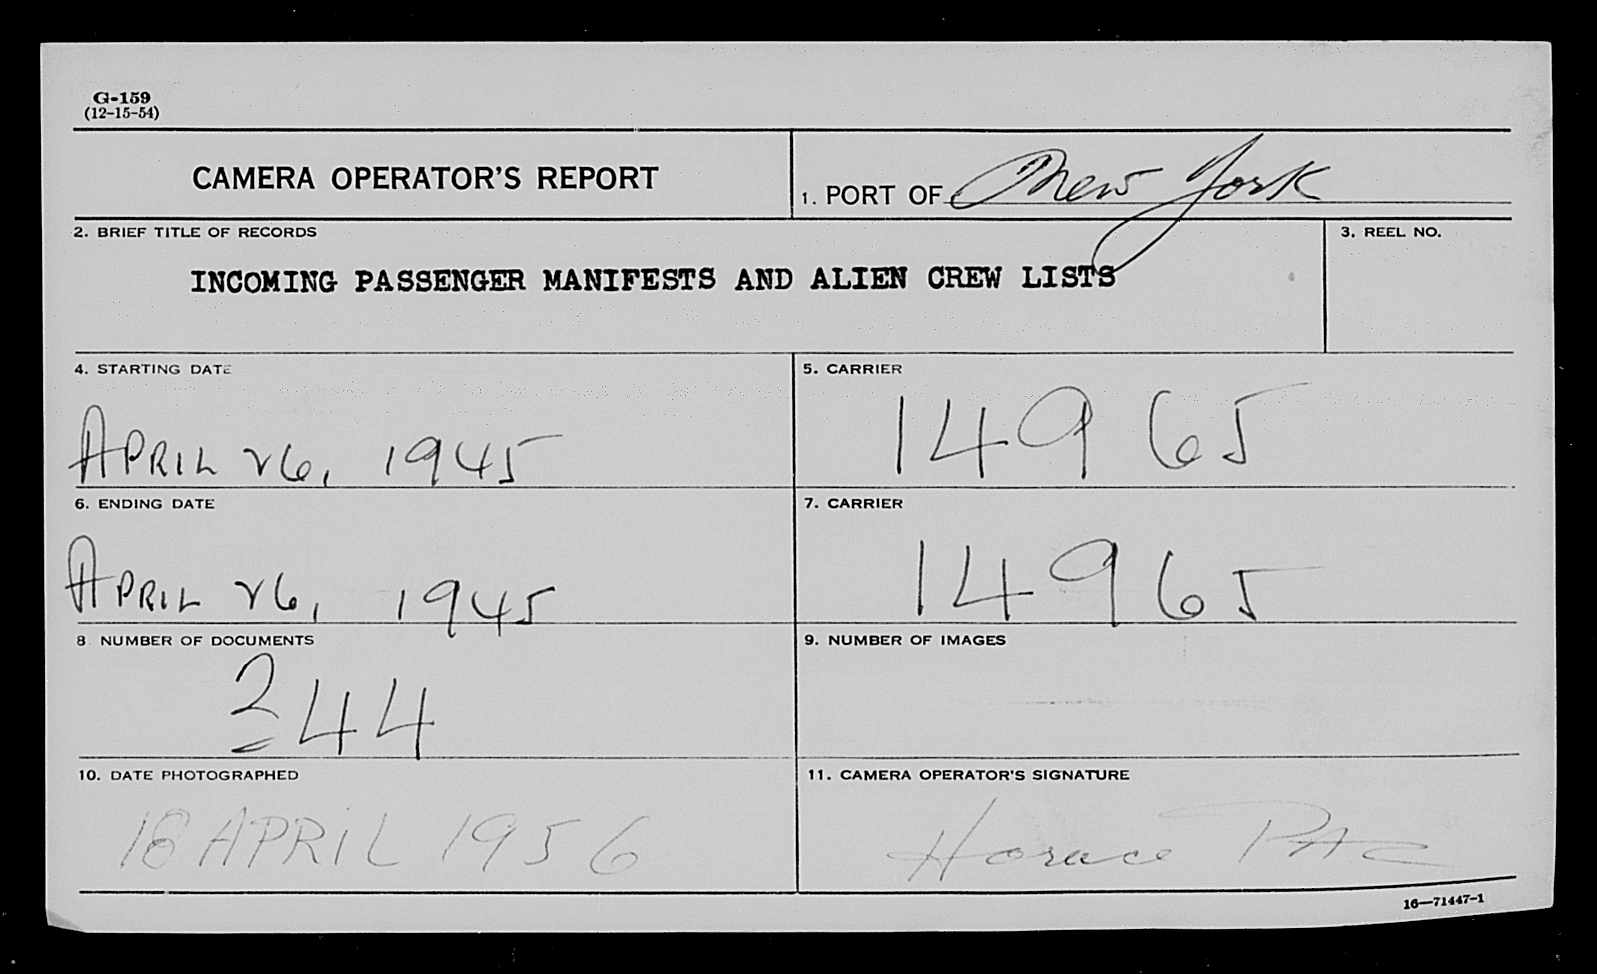 G-159
(12-15-54)
CAMERA OPERATOR'S REPORT
1. PORT OF New York
2. BRIEF TITLE OF RECORDS
INCOMING PASSENGER MANIFESTS AND ALIEN CREW LISTS
3. REEL NO.
4. STARTING DATE
APRIL 26, 1945
5. CARRIER
14965
6. ENDING DATE
APRIL 26, 1945
7. CARRIER
14965
8 NUMBER OF DOCUMENTS
244
9. NUMBER OF IMAGES
10. DATE PHOTOGRAPHED
18 APRIL 1956
11. CAMERA OPERATOR'S SIGNATURE
Horace
16—71447-1